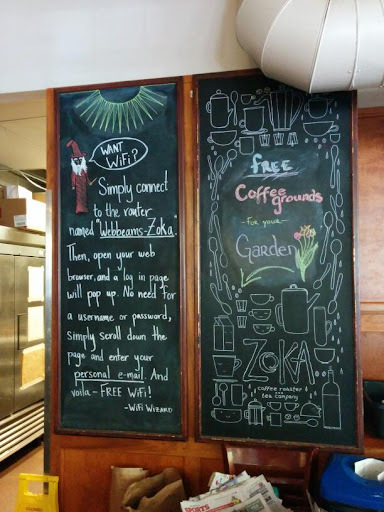 WANT
WiFi?
Simply connect
to the router
named "Webbeams-Zoka.
Then, open your web
browser, and a log in page
will pop up. No need for
a username or password,
simply scroll down the
page and enter your
personal e-mail. And
voila - FREE WiFi!
-WiFi Wizard
free
Coffee grounds
-For your-
Garden
ZOKA
coffee roaster
&
tea company
SPORTS